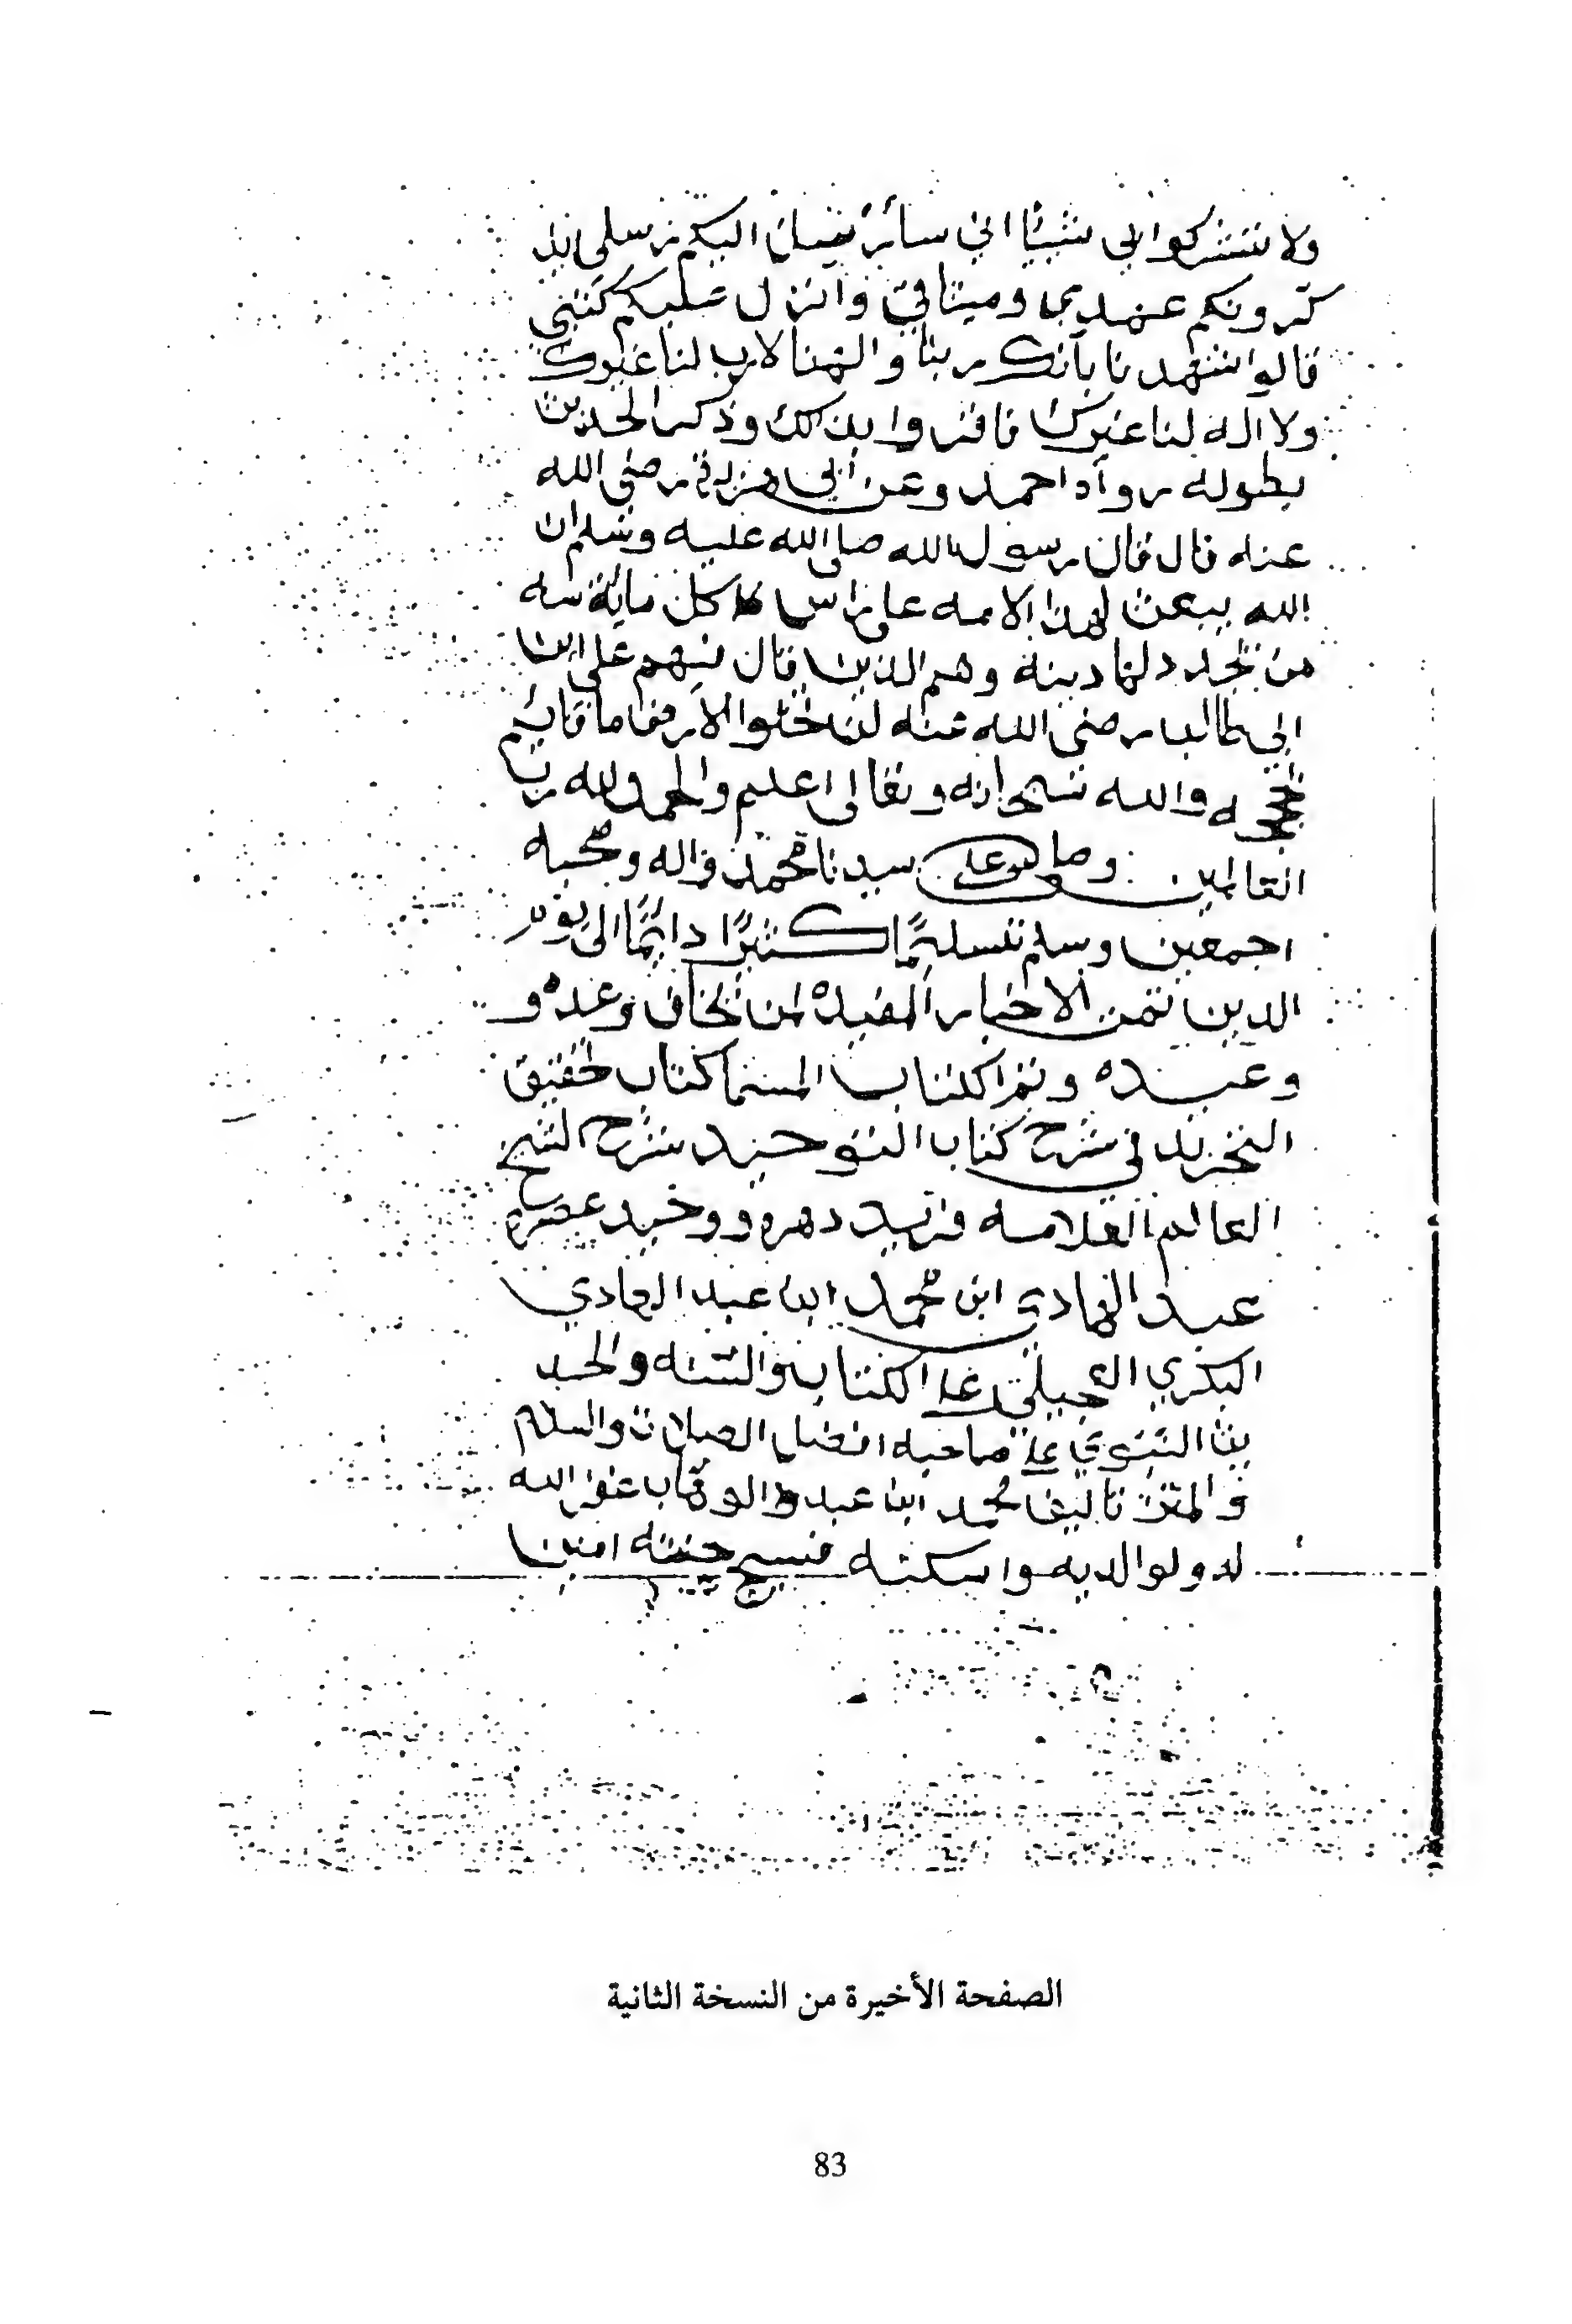 ولا تشركوا بي شيئا اني سأرسل اليكم رسلي يذ
كرونكم عهدي وميثاقي وأنزل عليكم كتبي
قالوا شهدنا بأنك ربنا والهنا لا رب لنا غيرك
ولا اله لنا غيرك فاقروا بذلك وذكر الحديث
بطوله رواه احمد وعن أبي هريرة رضي الله
عنه قال قال رسول الله صلى الله عليه وسلم ان
الله يبعث لهذا الامه على راس كل مائة سنه
من يجدد لها دينه وهم الذين قال فيهم علي ابن
ابي طالب رضي الله عنه لن تخلوا الارض ما قايم
بحجه والله سبحانه وتعالى اعلم والحمد لله رب
العالمين وصلى الله على سيدنا محمد واله وصحبه
اجمعين وسلم تسليمًا كثيرًا دائمًا الى يوم
الدين تمت الاخبار المفيده لمن يخاف وعده و
وعيده وتم الكتاب المسما كتاب تحقيق
التجريد في شرح كتاب التوحيد شرح الشيخ
العالم العلامه فريد دهره ووحيد عصره
عبد الهادي ابن محمد ابن عبد الهادي
البكري العجيلي على الكتاب والسنه والحد
يث النبوي على صاحبه افضل الصلات والسلام
والمتن تاليف محمد ابن عبد الوهاب غفر الله
له ولوالديه واسكنه فسيح جنته امين
الصفحة الأخيرة من النسخة الثانية
83